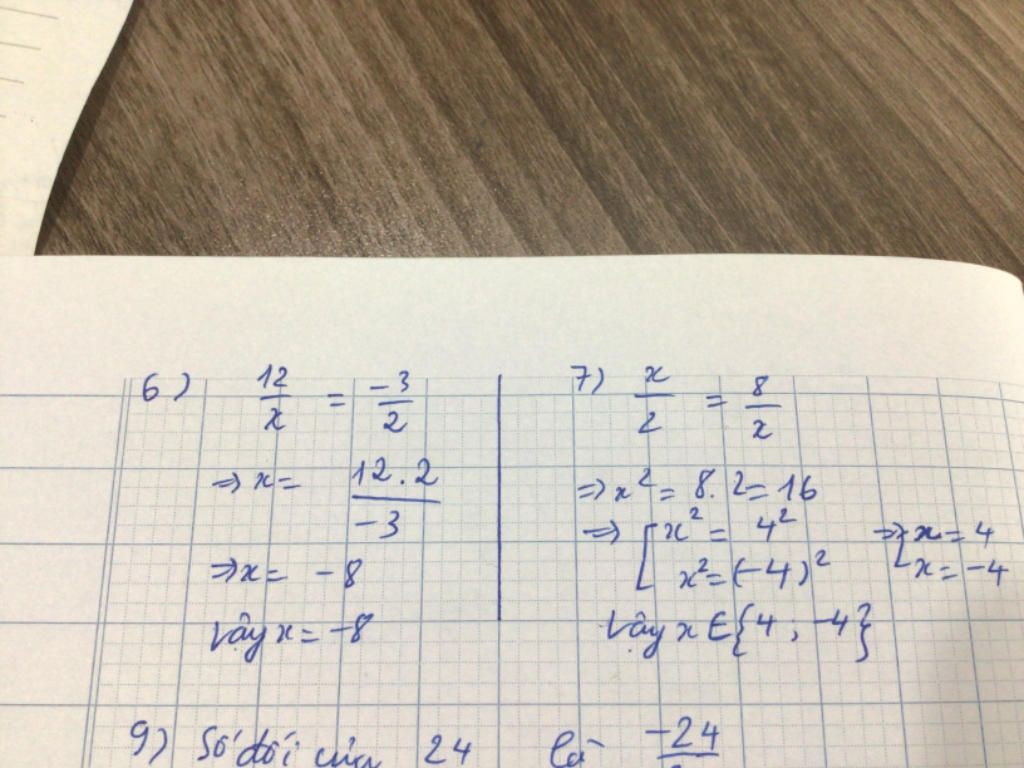 6) 12/x = -3/2
⇒ x = 12.2/-3
⇒ x = -8
Vậy x = -8
7) x/2 = 8/x
⇒ x² = 8.2 = 16
⇒ [ x² = 4² ⇒ [ x = 4
x² = (-4)² x = -4
Vậy x ∈ {4; -4}
9) Số đối của 24 là -24